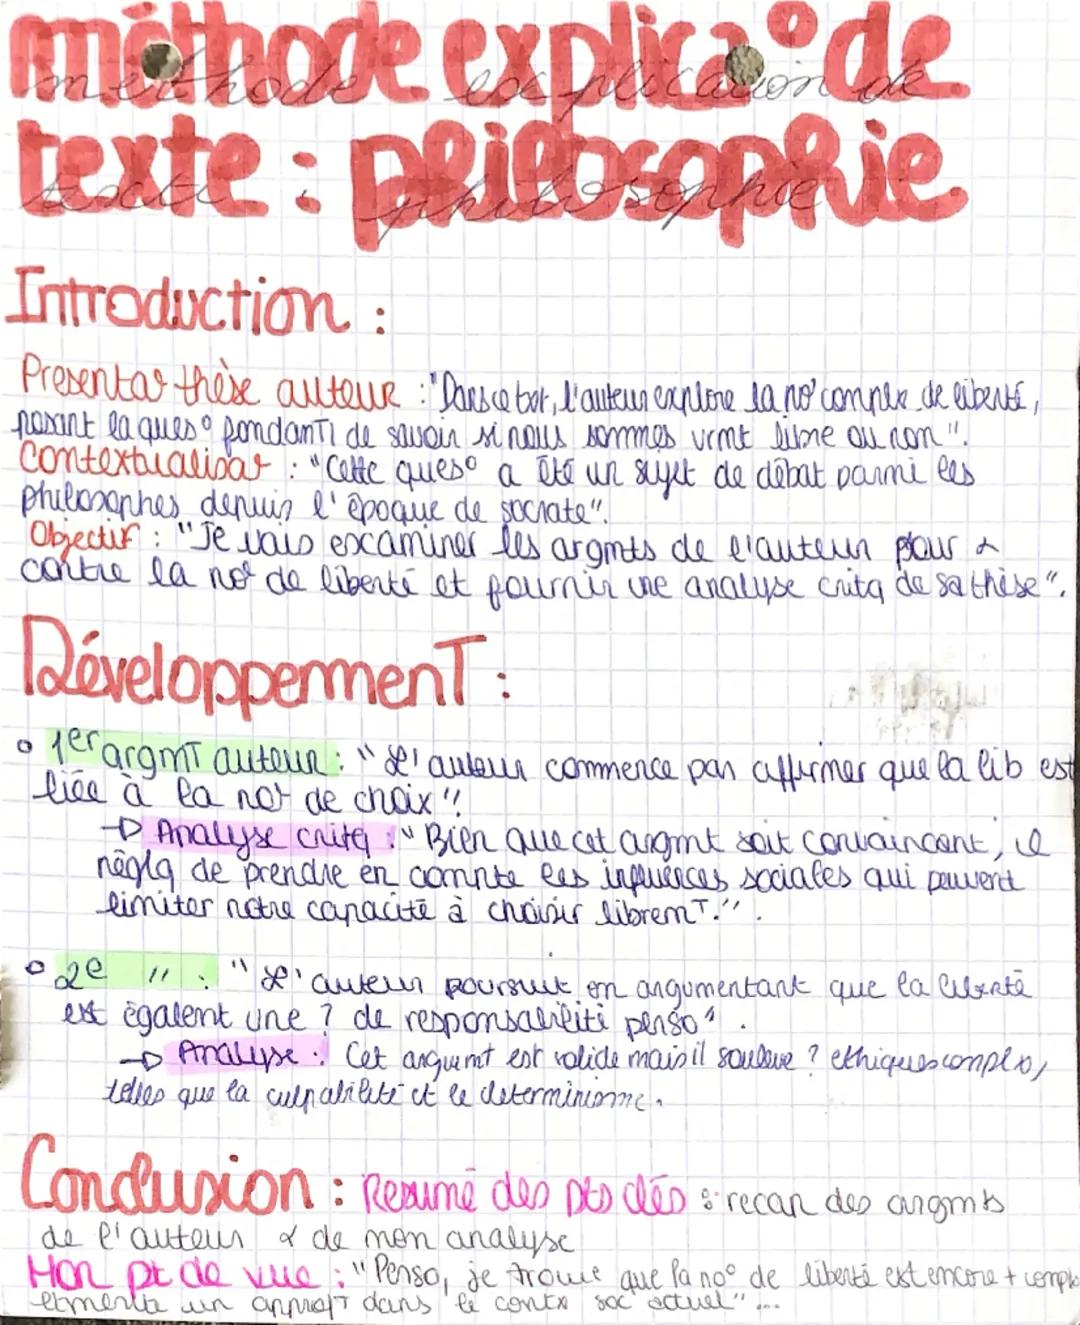 méthode explica° de
méthode explication de
texte : philosophie
texte philosophie
Introduction :
Presentat° thèse auteur : "Dans ce txt, l'auteur explore la no° complx de liberté,
posant la ques° fondanti de savoir si nous sommes vrmt libre ou non".
Contextualisat° : "Cette ques° a été un sujet de débat parmi les
philosophes depuis l'époque de socrate".
Objectif : "Je vais examiner les argmts de l'auteur pour &
contre la not° de liberté et fournir une analyse critq de sa thèse".
Développement :
1er argmt auteur : "L'auteur commence par affirmer que la lib est
liée à la not° de choix".
→ Analyse critq : "Bien que cet argmt soit convaincant, il
néglg de prendre en compte les influences sociales qui peuvent
limiter notre capacité à choisir libremt.".
2e " : "L'auteur poursuit en argumentant que la liberté
est égalemt une ? de responsabilité perso".
→ Analyse : Cet argumt est valide mais il soulève ? ethiques complxs,
telles que la culpabilité et le determinisme.
Conclusion : Resumé des pts clés : recap des argmts
de l'auteur & de mon analyse
Mon pt de vue : "Perso, je trouve que la no° de liberté est encore + complx
et mérite un approft dans le contx soc actuel"...